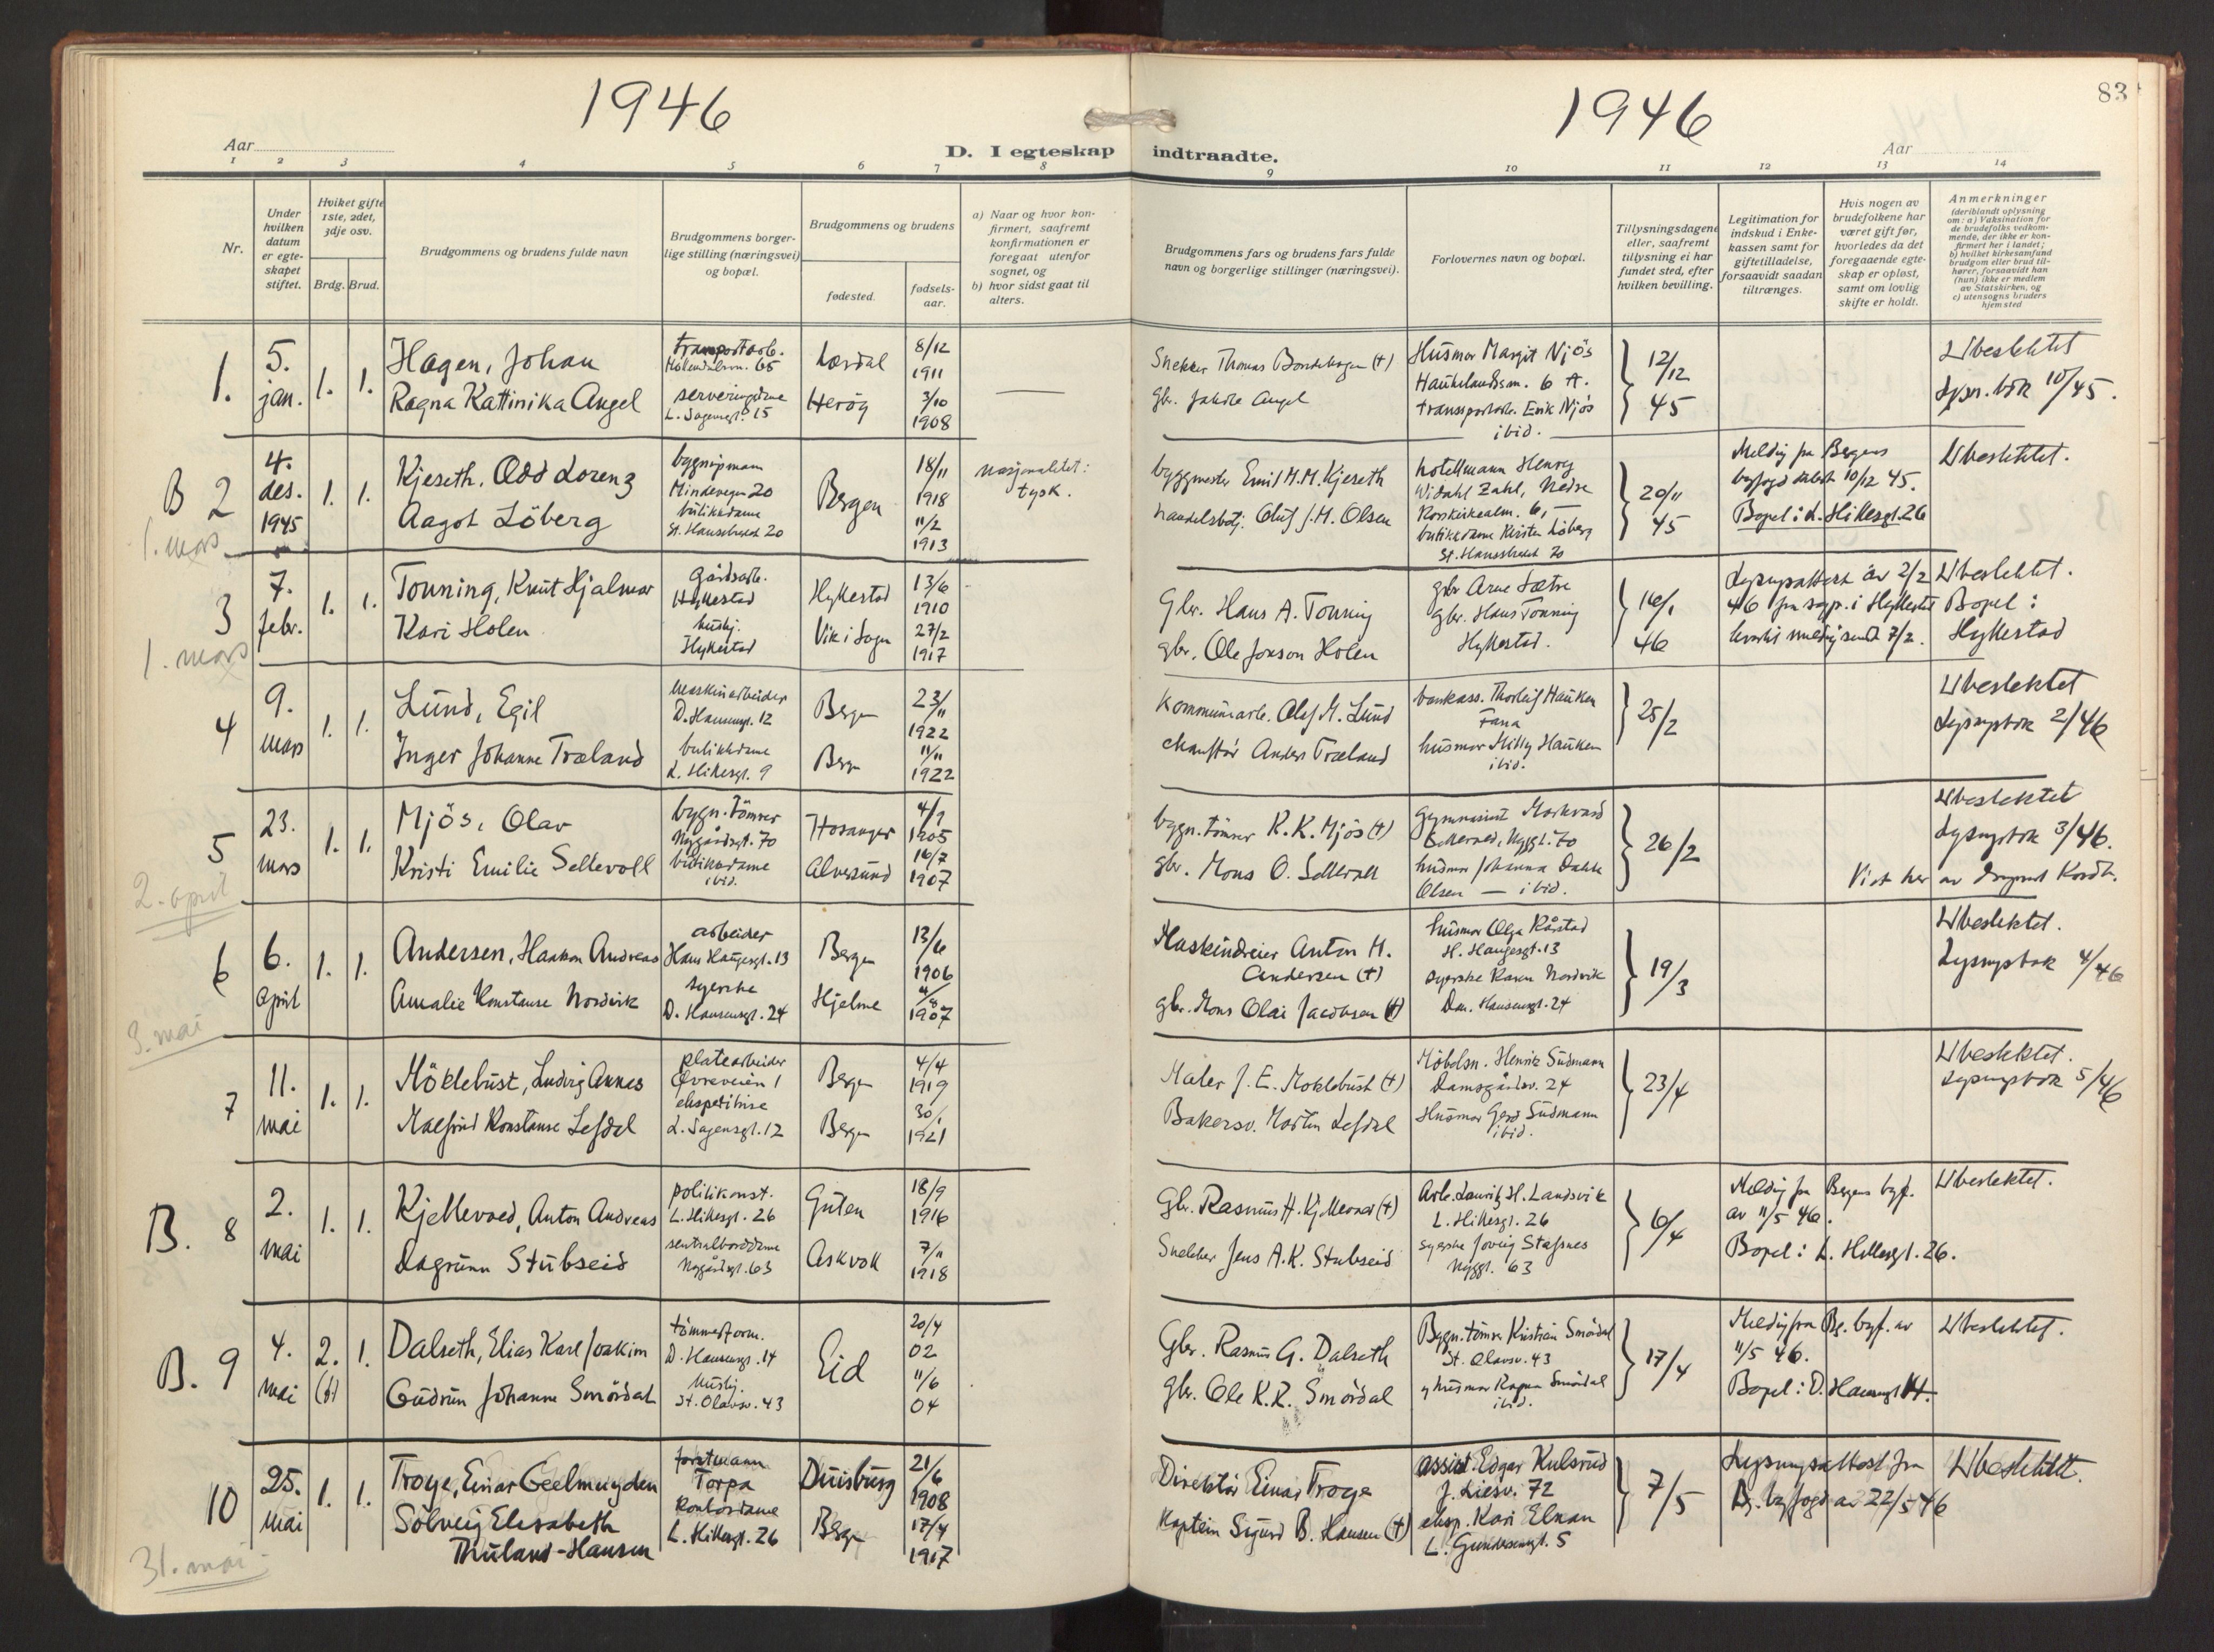 1946
1946
83
Aar
D. I egteskap indtraadte.
Aar
1 2 3 4 5 6 7 8 9 10 11 12 13 14
Nr.
Under hvilken datum er egteskapet stiftet.
Hvilket gifte 1ste, 2det, 3dje osv.
Brdg. Brud.
Brudgommens og brudens fulde navn
Brudgommens borgerlige stilling (næringsvei) og bopæl.
Brudgommens og brudens
fødested.
fødselsaar.
a) Naar og hvor konfirmert, saafremt konfirmationen er foregaat utenfor sognet, og
b) hvor sidst gaat til alters.
Brudgommens fars og brudens fars fulde navn og borgerlige stillinger (næringsvei).
Forlovernes navn og bopæl.
Tillysningsdagene eller, saafremt tillysning ei har fundet sted, efter hvilken bevilling.
Legitimation for indskud i Enkekassen samt for giftetilladelse, forsaavidt saadan tiltrænges.
Hvis nogen av brudefolkene har været gift før, hvorledes da det foregaaende egteskap er opløst, samt om lovlig skifte er holdt.
Anmerkninger
(deriblandt oplysning om: a) Vaksination for de brudefolks vedkommende, der ikke er konfirmert her i landet;
b) hvilket kirkesamfund brudgom eller brud tilhører, forsaavidt han (hun) ikke er medlem av Statskirken, og
c) utensogns bruders hjemsted
1. 5. jan. 1. 1.
Hagen, Johan
Ragna Kattinika Angel
transportarb.
65
serveringsdame
L. Sagensgt. 15
Lærdal
Herøy
8/12 1911
3/10 1908
Snekker Thomas (†)
gbr. Angel
Husmor Margit Njös
6 A.
transportarb. Erik Njös
ibid.
12/12 45
Ubeslektet
Lysn. bok 10/45.
B 2 4. des. 1945 1. 1.
Kjeseth, Odd Lorenz
Aagot Löberg
Mindevegen 20
butikkdame
St. Hansstredet 20
Bergen
18/11 1918
11/2 1913
nasjonalitet:
tysk.
byggmester Emil M. M. Kjeseth
handelsbetj. Oluf J. M. Olsen
hotellmann Henry
Widahl Zahl, Nedre
Korskirkealm. 6,
butikkdame Kirsten Löberg
St. Hansstredet 20
20/11 45
Melding fra Bergens
byfogd datert 10/12 45.
Bopel: L. Hillesgt. 26
Ubeslektet.
1. mars
3 7. febr. 1. 1.
Tonning, Knut Hjalmar
Kari Holen
Gårdsarb.
Hyllestad
hushj.
Hyllestad
Hyllestad
Vik i Sogn
13/6 1910
27/2 1917
Gbr. Hans A. Tonning
gbr. Ole Jonson Holen
gbr Arne Sætre
gbr. Hans Tonning
Hyllestad.
16/1 46
Lysningsattest av 2/2
46 fra sogn. i Hyllestad
7/2.
Ubeslektet.
Bopel:
Hyllestad
1. mars
4 9. mars 1. 1.
Lund, Egil
Inger Johanne Træland
Maskinarbeider
D. Hansensgt. 12
butikkdame
L. Hillesgt. 9
Bergen
Bergen
23/11 1922
11/11 1922
Kommunearb. Olaf M. Lund
chauffør Anders Træland
bankass. Thorleif Hauken
Fana
husmor Milly Hauken
ibid.
25/2
Ubeslektet
Lysningsbok 2/46
5 23. mars 1. 1.
Mjös, Olav
Kristi Emilie Sellevoll
bygn. tömrer
Nygårdsgt. 70
butikkdame
ibid.
Hosanger
Alversund
4/7 1905
16/7 1907
bygn. tömrer K. K. Mjös (†)
gbr. Mons O. Sellevoll
gymnasiast
Nyggt. 70
husmor Johanna Dahle
Olsen — ibid.
26/2
Ubeslektet
Lysningsbok 3/46.
Viet her av
2. april
6 6. april 1. 1.
Andersen, Haakon Andreas
Amalie Konstanse Nordvik
arbeider
Hans Haugesgt. 13
syerske
D. Hansensgt. 24
Bergen
Hjelme
13/6 1906
4/8 1907
Maskindreier Anton M.
Andersen (†)
gbr. Mons Olai Jacobsen (†)
husmor Olga Rårstad
H. Haugesgt. 13
syerske Karen Nordvik
Dan. Hansensgt. 24
19/3
Ubeslektet.
Lysningsbok 4/46
3. mai
7 11. mai 1. 1.
Möklebust, Ludvig Annes
Malfrid Konstanse Lefdal
platearbeider
Øvreveien 1
ekspeditrise
L. Sagensgt. 12
Bergen
Bergen
4/4 1919
30/1 1921
Maler J. E. Moklebust (†)
Bakersv. Martin Lefdal
Möbelsn. Henrik Sudmann
Damsgårdsv. 24
Husmor Gerd Sudmann
ibid.
23/4
Ubeslektet.
Lysningsbok 5/46
B. 8 2. mai 1. 1.
Kjellevoed, Anton Andreas
Dagrunn Stubseid
politikonst.
L. Hillesgt. 26
sentralborddame
Nygårdsgt. 63
Gulen
Askvoll
18/9 1916
7/11 1918
Gbr. Rasmus H. Kjellevoed (†)
Snekker Jens A. K. Stubseid
Arb. Lauritz H. Landsvik
L. Hillesgt. 26
syerske Jovig Stafsnes
Nyggt. 63
6/4
Melding fra Bergens byf.
av 11/5 46.
Bopel: L. Hillesgt. 26.
Ubeslektet.
B. 9 4. mai 2. (†) 1.
Dalseth, Elias Karl Joakim
Gudrun Johanne Smördal
tömmerform.
D. Hansensgt. 14
hushj.
St. Olavsv. 43
Eid
20/4 02
11/6 04
Gbr. Rasmus G. Dalseth
gbr. Ole K. R. Smördal
Bygn. tömrer Kristian Smördal
St. Olavsv. 43
husmor Ragna Smördal
ibid.
17/4
Melding fra Bg. byf. av
11/5 46.
Bopel: D. Hansensgt 14.
Ubeslektet.
10 25. mai 1. 1.
Troye, Einar Geelmuyden
Solveig Elisabeth
Thuland-Hansen
forstmann
Torpa
Kontordame
L. Hillesgt. 26
Duisburg
Bergen
21/6 1908
17/4 1917
Direktör Einar Troye
Kaptein Sigurd B. Hansen (†)
assist. Edgar Kulsrud
J. Liesv. 72
eksp. Kari Elnan
L. Gundersensgt. 5
7/5
Lysningsattest fra
Bg. byfogd av 22/5 46
Ubeslektet.
31. mai